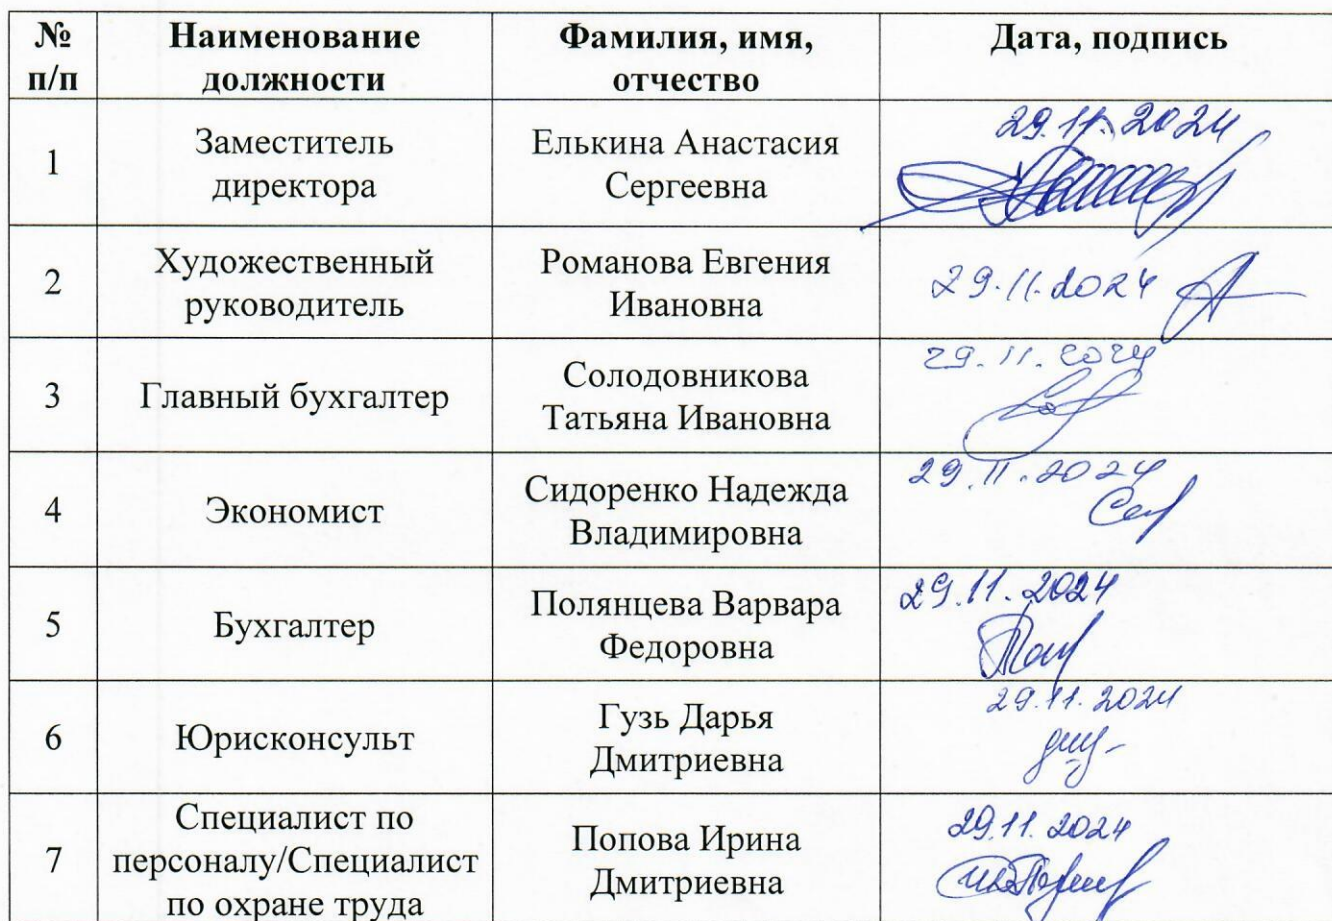 № п/п Наименование должности Фамилия, имя, отчество Дата, подпись
1 Заместитель директора Елькина Анастасия Сергеевна 29.11.2024
2 Художественный руководитель Романова Евгения Ивановна 29.11.2024
3 Главный бухгалтер Солодовникова Татьяна Ивановна 29.11.2024
4 Экономист Сидоренко Надежда Владимировна 29.11.2024
5 Бухгалтер Полянцева Варвара Федоровна 29.11.2024
6 Юрисконсульт Гузь Дарья Дмитриевна 29.11.2024
7 Специалист по персоналу/Специалист по охране труда Попова Ирина Дмитриевна 29.11.2024